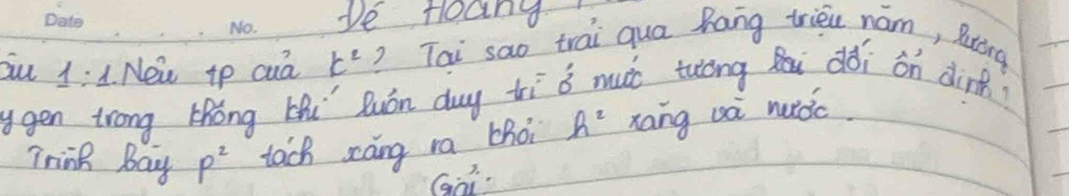 Date No. Đề Hoàng
Câu 1: 1. Nêu tp của k²? Tại sao trải qua hàng triệu năm, lượng
oxygen trong không khí luôn duy trì ở mức tương đối ổn định?
Trình bày p² tách xăng ra khỏi h² xăng và nước.
Giải: